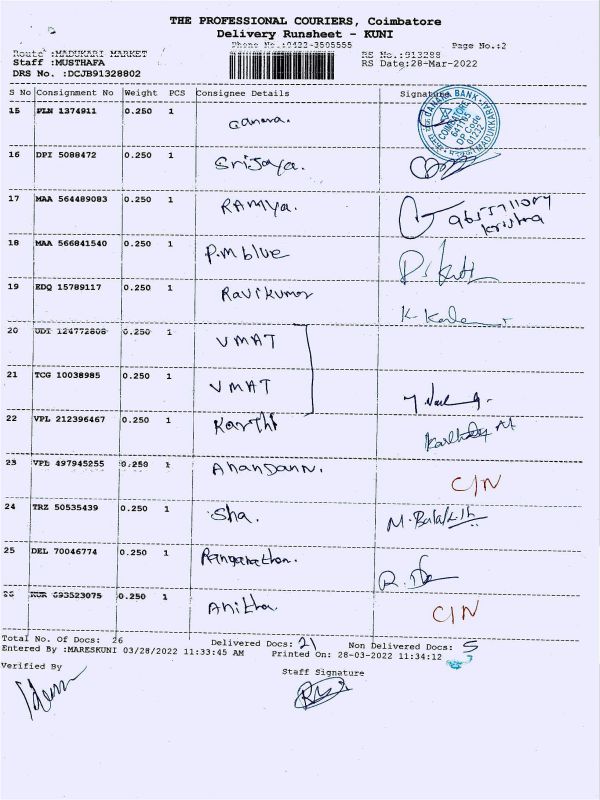 THE PROFESSIONAL COURIERS, Coimbatore
Delivery Runsheet - KUNI
Phone No.:0422-3505555 Page No.:2
Route :MADUKARI MARKET RS No.:913288
Staff :MUSTHAFA RS Date:28-Mar-2022
DRS No. :DCJB91328802
S No Consignment No Weight PCS Consignee Details Signature
15 PLN 1374911 0.250 1 Canara.
CANARA BANK
COIMBATORE
641105
DP Code
01232
MADUKKARAI
16 DPI 5088472 0.250 1 Srijaya.
17 MAA 564489083 0.250 1 RAMya.
Krishna
18 MAA 566841540 0.250 1 P.M blue
19 EDQ 15789117 0.250 1 Ravikumar
20 UDT 124772808 0.250 1 VMAT
21 TCG 10038985 0.250 1 VMAT
22 VPL 212396467 0.250 1 Karthi
23 VPL 497945255 0.250 1 AnanDann. C/N
24 TRZ 50535439 0.250 1 Sha.
25 DEL 70046774 0.250 1 Ranganathan.
26 693523075 0.250 1 Anitha C/N
Total No. Of Docs: 26 Delivered Docs: 21 Non Delivered Docs: 5
Entered By :MARESKUNI 03/28/2022 11:33:45 AM Printed On: 28-03-2022 11:34:12
Verified By Staff Signature